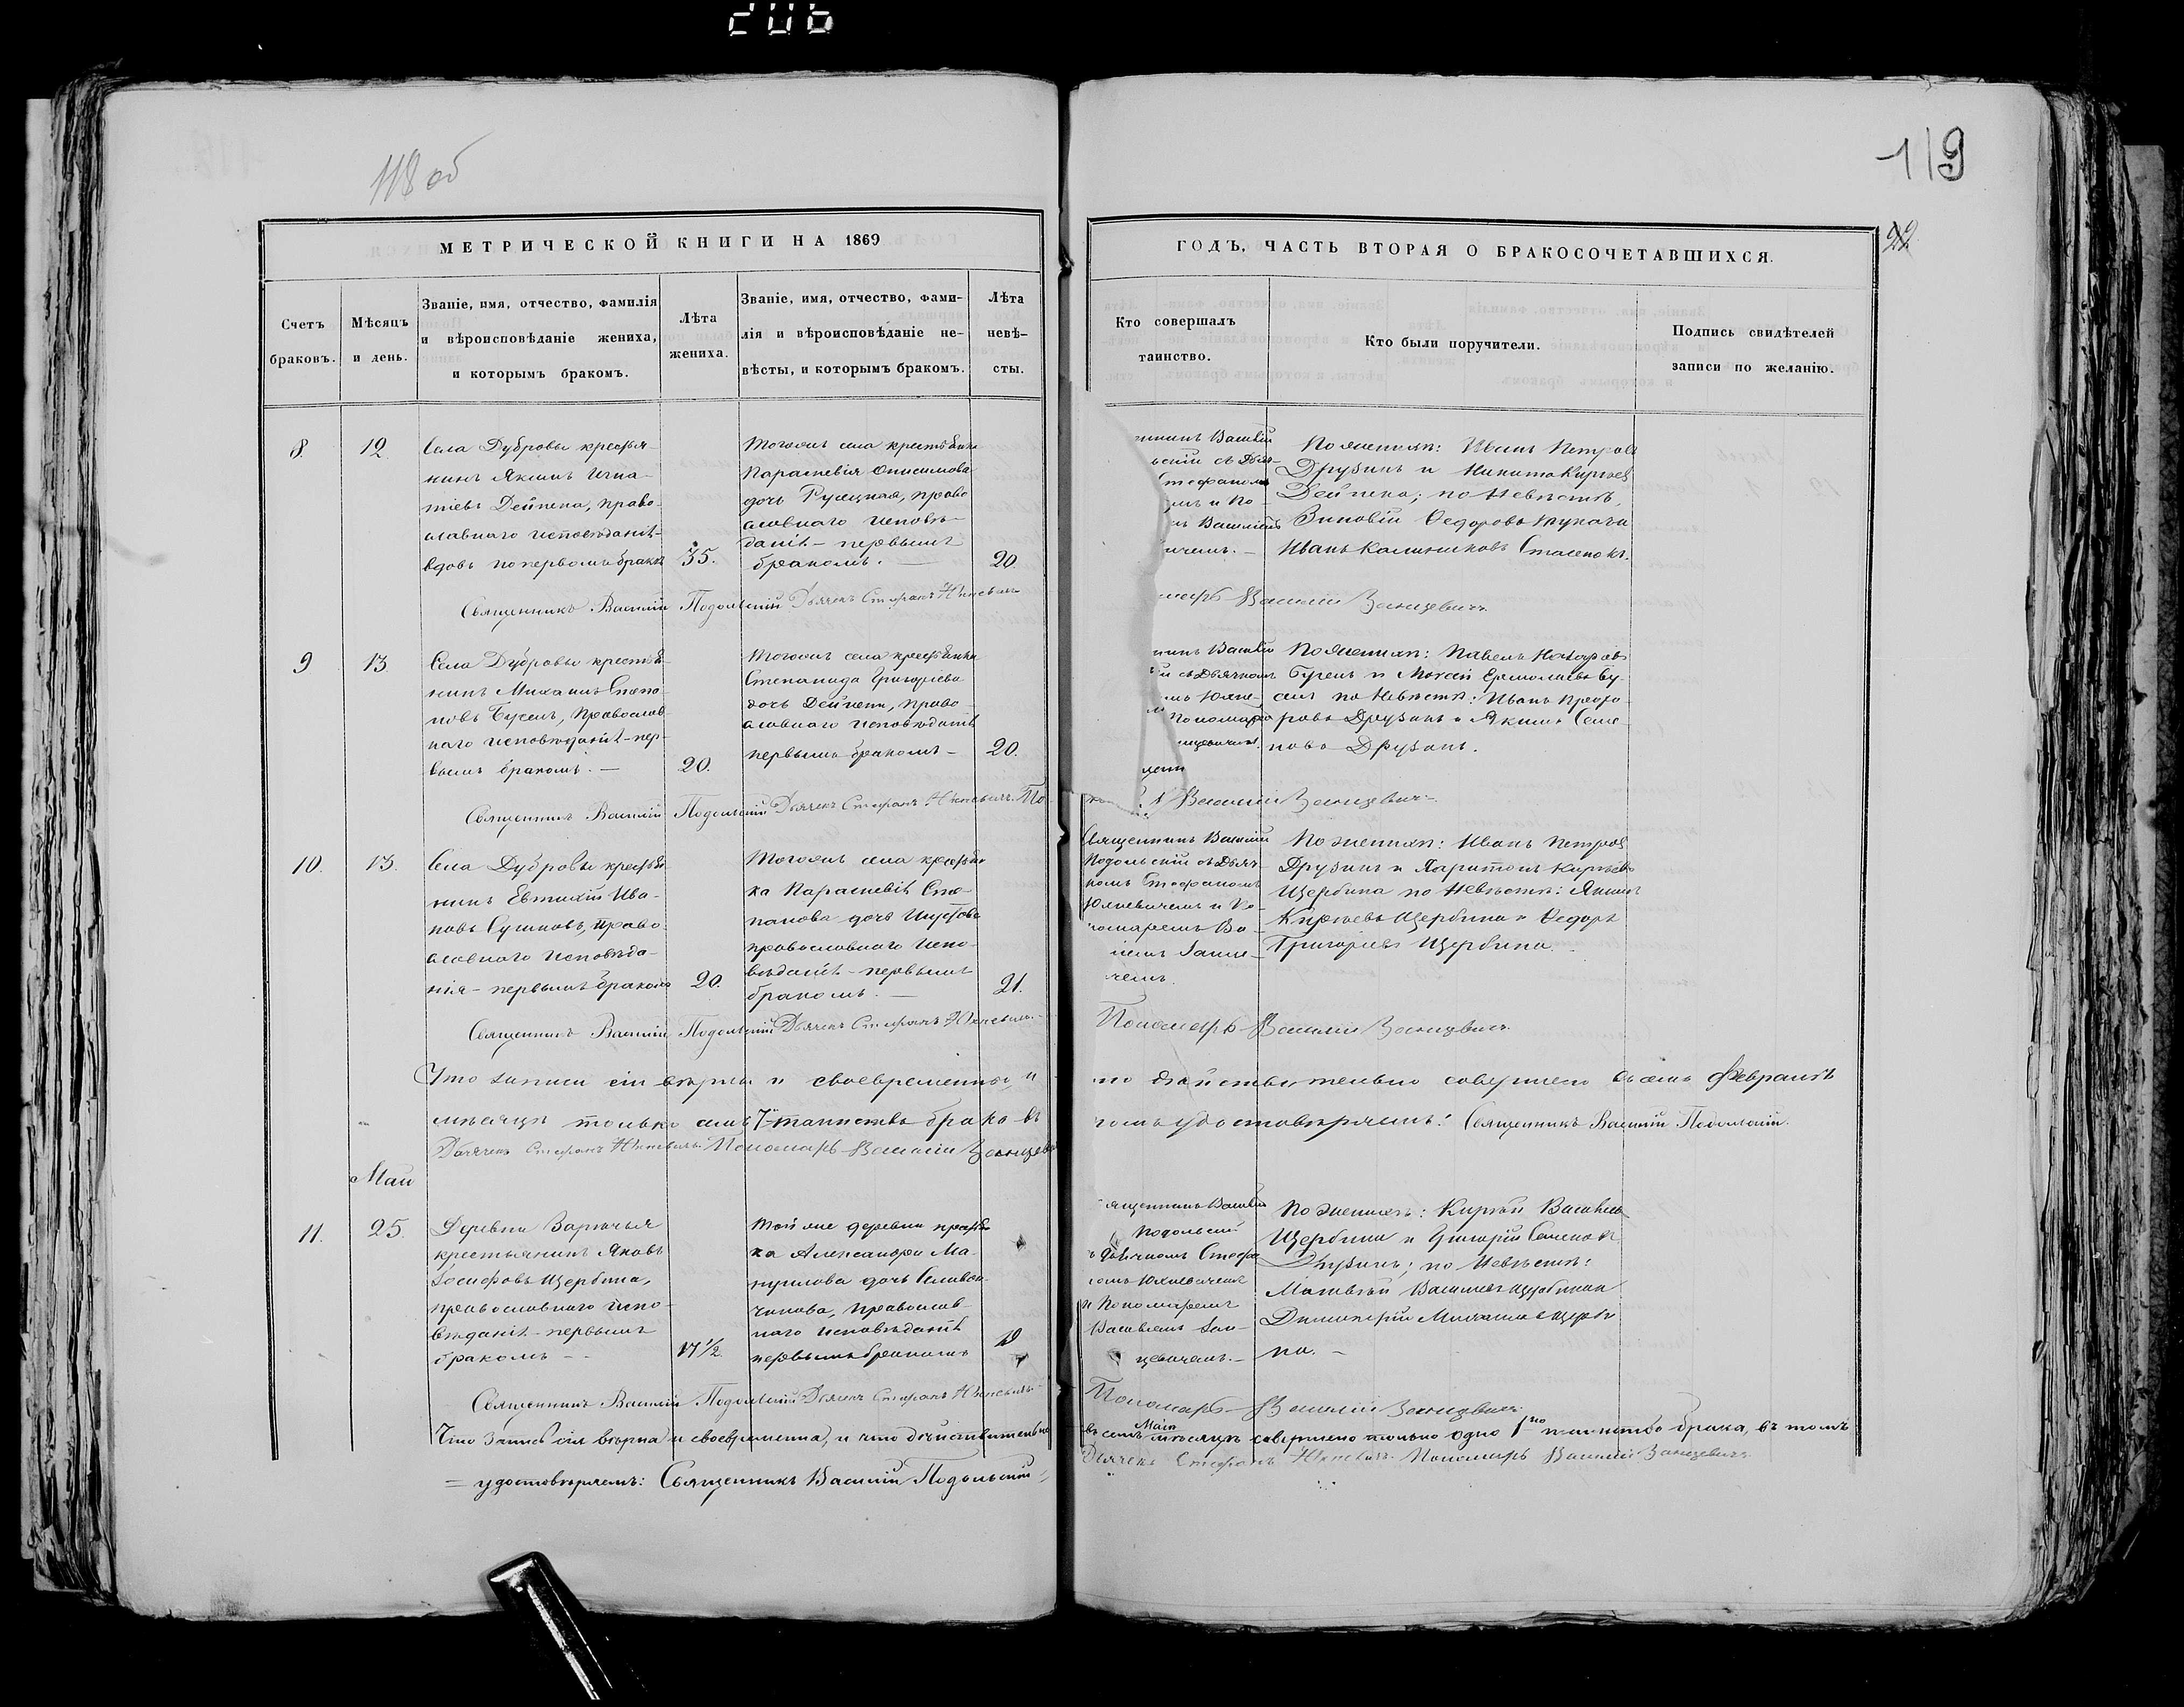 206
118 об
119
22
МЕТРИЧЕСКОЙ КНИГИ НА 1869
ГОДЪ, ЧАСТЬ ВТОРАЯ О БРАКОСОЧЕТАВШИХСЯ.
Счетъ
браковъ.
Мѣсяцъ
и день.
Званіе, имя, отчество, фамилія
и вѣроисповѣданіе жениха,
и которымъ бракомъ.
Лѣта
жениха.
Званіе, имя, отчество, фами-
лія и вѣроисповѣданіе не-
вѣсты, и которымъ бракомъ.
Лѣта
невѣ-
сты.
Кто совершалъ
таинство.
Кто были поручители.
Подпись свидѣтелей
записи по желанію.
8.
12
Села Дубровы крестья-
нинъ Якимъ Игна-
тіевъ Дейнека, право-
славнаго исповѣданія-
вдовъ по первомъ бракѣ
35.
Тогожъ села крестьянка
Параскевія Онисимова
дочь Руляцкая, право
славнаго исповѣ-
данія - первымъ
бракомъ. —
20.
Василій
съ Дья-
Стефаномъ
и По
Василіемъ
По женихѣ: Иванъ Петровъ
Друзинъ и Никита Киріевъ
Дейнека; по Невѣстѣ,
Зиновій Ѳедоровъ
Иванъ Калиниковъ
Священникъ Василій Подольскій Дьячекъ Стефанъ Юхневичъ
Василій Занцевичъ
9
13
Села Дубровы крестья-
нинъ Михаилъ Степа-
новъ Бусель, Православ
наго исповѣданія - пер-
вымъ бракомъ. —
20.
Тогожъ села крестьянка
Степанида Григорьева
дочь Дейнека, право-
славнаго исповѣданія
первымъ бракомъ —
20.
Василій
съ Дьячкомъ
Юхне-
Пономаре
По женихѣ: Павелъ
Бусель и Моисей Ермолаевъ Бу-
сель по Невѣстѣ: Иванъ
Друзинъ и Якимъ Семе-
новъ Друзинъ.
Священникъ Василій Подольскій Дьячекъ Стефанъ Юхневичъ. По-
Василій Занцевичъ.
10.
13.
Села Дубровы крестья
нинъ Евтихій Ива-
новъ Сушковъ, право
славнаго исповѣда-
нія - первымъ бракомъ
20.
Тогожъ села крестьян
ка Параскевія Сте-
панова дочь
православнаго испо-
вѣданія - первымъ
бракомъ. —
21.
Священникъ Василій
Подольскій съ Дьяч-
комъ Стефаномъ
Юхневичемъ и По-
номаремъ Ва-
Занце-
чемъ.
По женихѣ: Иванъ Петровъ
Друзинъ и Харитонъ Киріевъ
Щербина по Невѣстѣ: Якимъ
Киріевъ Щербина и Ѳедоръ
Григоріевъ Щербина.
Священникъ Василій Подольскій Дьячекъ Стефанъ Юхневичъ.
Пономарь Василій Занцевичъ.
Что записи сіи вѣрны и своевременны, и
что дѣйствительно совершено въ семъ Февралѣ
мѣсяцѣ только семь 7 таинствъ брака - въ
томъ удостовѣряемъ: Священникъ Василій Подольскій.
Дьячекъ Стефанъ Юхневичъ Пономарь Василій Занцевичъ
Май
11.
25.
Деревни Заричья
крестьянинъ Яковъ
Іосифовъ Щербина,
православнаго испо-
вѣданія - первымъ
бракомъ —
17 1/2.
Той же деревни крестьян
ка Александра Ма-
нуилова дочь
православ-
наго исповѣданія
первымъ бракомъ
19
Священникъ Василій
Подольскій
съ Дьячкомъ Стефа
номъ Юхневичемъ
и Пономаремъ
Василіемъ Зан-
цевичемъ. —
По женихѣ: Кирѣй Василіевъ
Щербина и Григорій Семеновъ
Друзинъ; по Невѣстѣ:
Матвѣй Василіевъ Щербина и
Димитрій Михаиловъ Щерби
на. —
Священникъ Василій Подольскій Дьячекъ Стефанъ Юхневичъ
Пономарь Василій Занцевичъ.
Что запись сія вѣрна и своевременна, и что дѣйствительно
въ семъ Маѣ мѣсяцѣ совершено только одно 1-но таинство брака, въ томъ
= удостовѣряемъ: Священникъ Василій Подольскій
Дьячекъ Стефанъ Юхневичъ Пономарь Василій Занцевичъ.